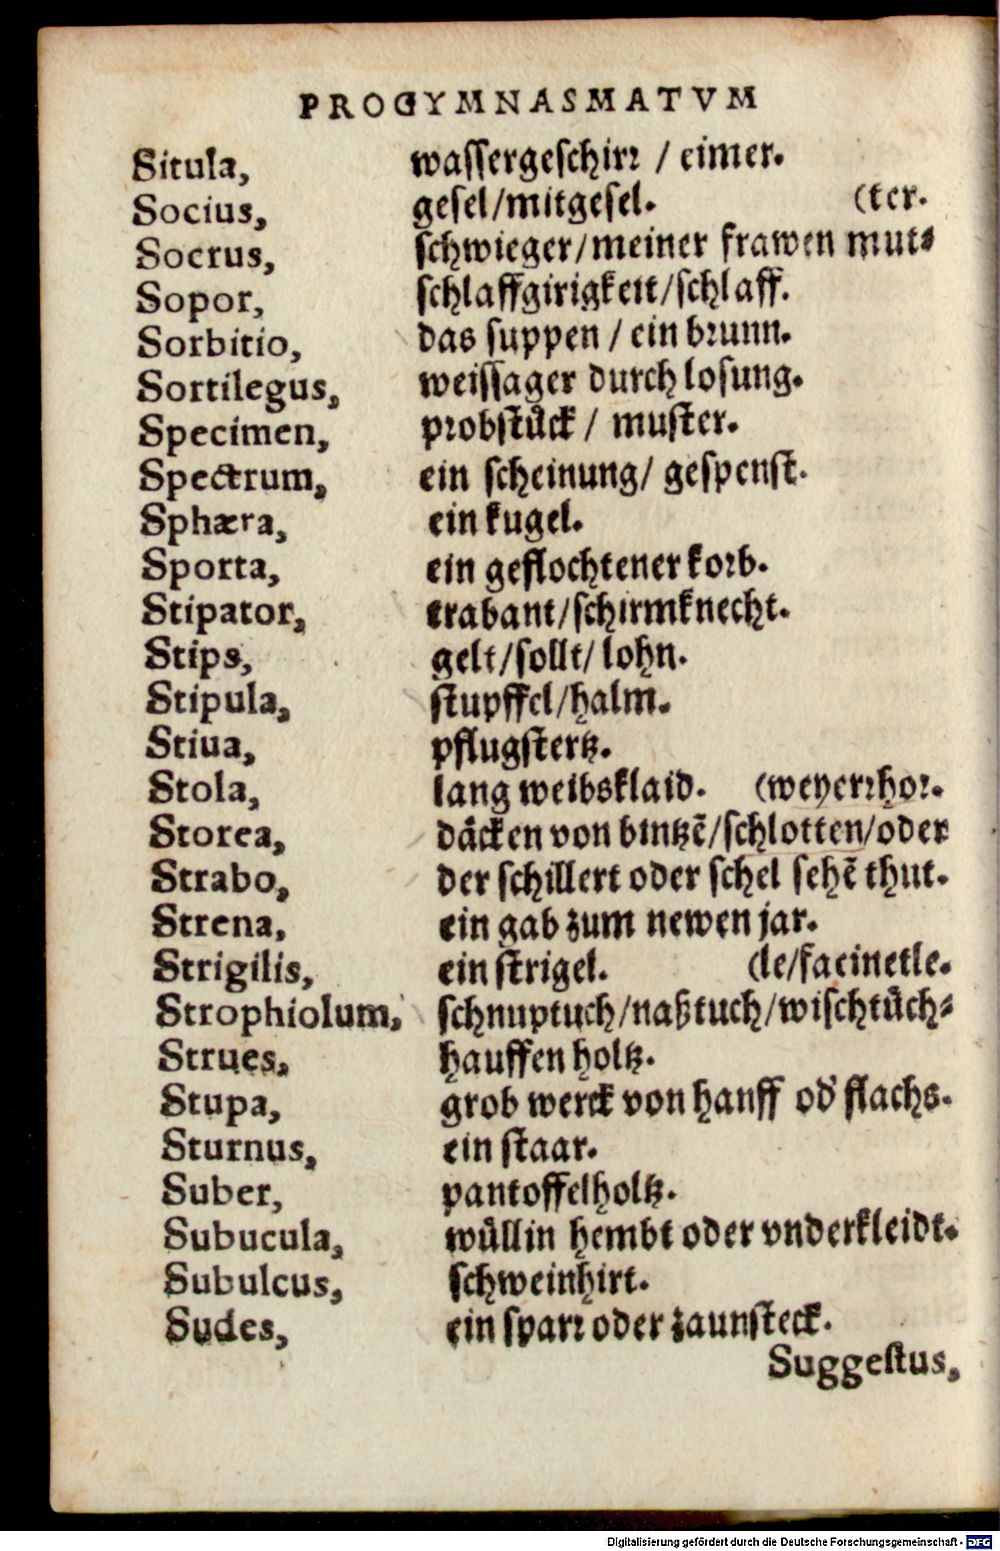 PROGYMNASMATVM
Situla, wassergeschirr / eimer.
Socius, gesel/mitgesel. (ter.
Socrus, schwieger/meiner frawen mut⸗
Sopor, schlaffgirigkeit/schlaff.
Sorbitio, das suppen / ein brunn.
Sortilegus, weissager durch losung.
Specimen, probstuͤck / muster.
Spectrum, ein scheinung/ gespenst.
Sphæra, ein kugel.
Sporta, ein geflochtener korb.
Stipator, trabant/schirmknecht.
Stips, gelt/sollt/ lohn.
Stipula, stupffel/halm.
Stiua, pflugstertz.
Stola, lang weibsklaid. (weyerrhor.
Storea, daͤcken von bintzẽ/schlotten/oder
Strabo, der schillert oder schel sehẽ thut.
Strena, ein gab zum newen jar.
Strigilis, ein strigel. (le/facinetle.
Strophiolum, schnuptuch/naßtuch/wischtuͤch⸗
Strues, hauffen holtz.
Stupa, grob werck von hanff od' flachs.
Sturnus, ein staar.
Suber, pantoffelholtz.
Subucula, wuͤllin hembt oder vnderkleidt.
Subulcus, schweinhirt.
Sudes, ein sparr oder zaunsteck.
Suggestus,
Digitalisierung gefördert durch die Deutsche Forschungsgemeinschaft - DFG